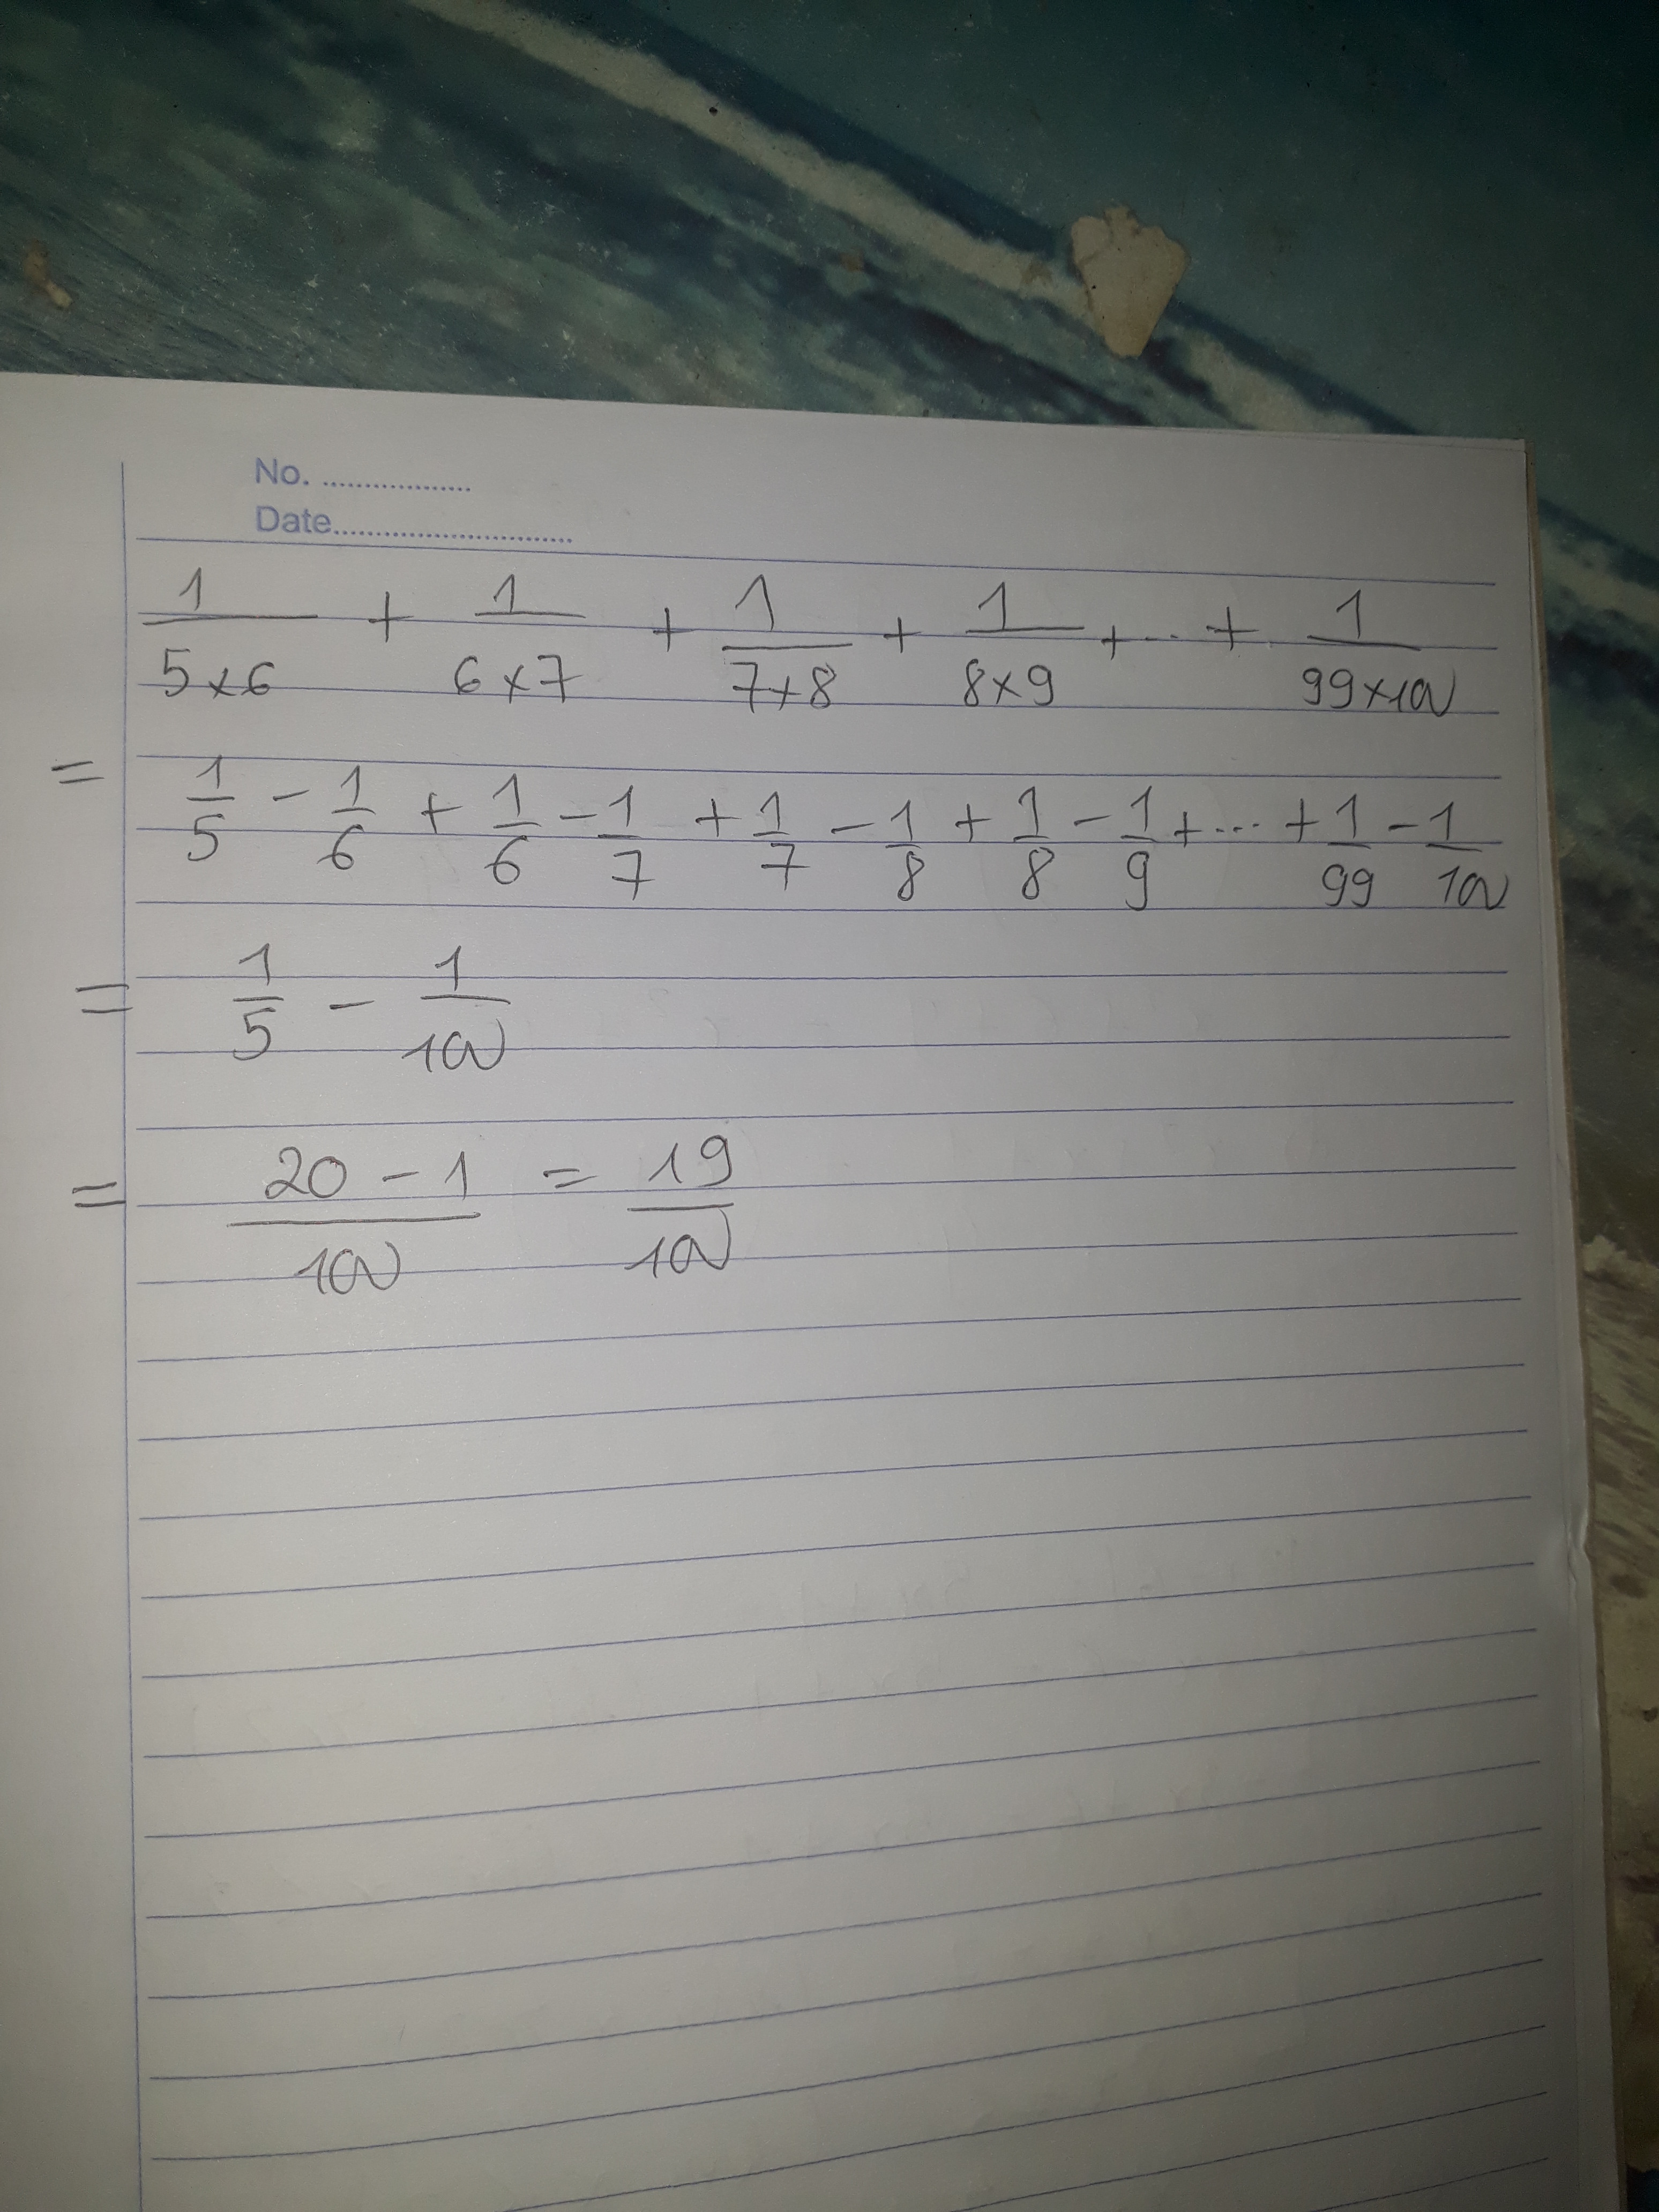 No. ..................
Date.............................
1/(5×6) + 1/(6×7) + 1/(7×8) + 1/(8×9) + ... + 1/(99×100)
= 1/5 - 1/6 + 1/6 - 1/7 + 1/7 - 1/8 + 1/8 - 1/9 + ... + 1/99 - 1/100
= 1/5 - 1/100
= (20 - 1)/100 = 19/100